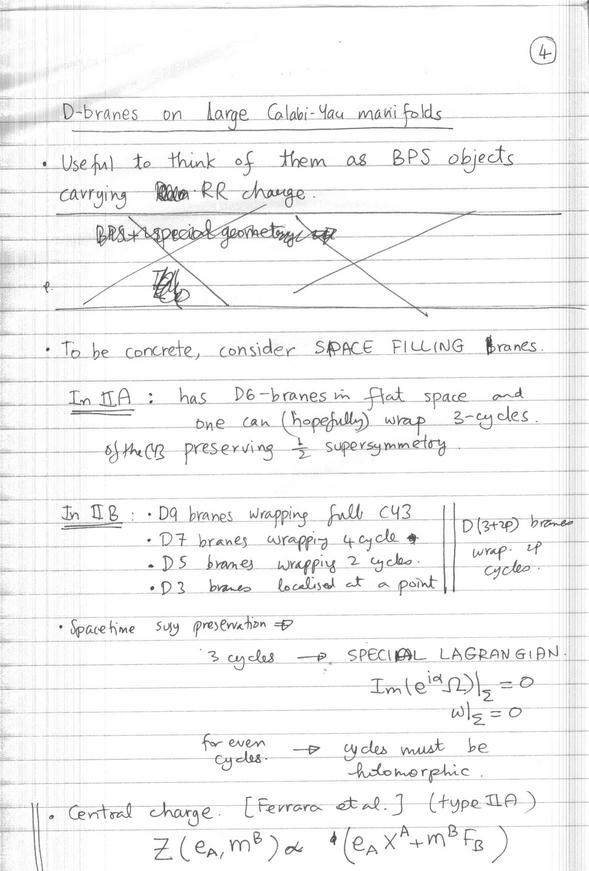 4
D-branes on Large Calabi-Yau manifolds
• Useful to think of them as BPS objects
carrying RR charge.
BPS + special geometry
• To be concrete, consider SPACE FILLING branes.
In IIA : has D6-branes in flat space and
one can (hopefully) wrap 3-cycles.
of the CY3 preserving 1/2 supersymmetry.
In IIB : • D9 branes wrapping full CY3
• D7 branes wrapping 4 cycle
• D5 branes wrapping 2 cycles.
• D3 branes localised at a point
D(3+2p) branes
wrap. 2p
cycles.
• Spacetime susy preservation ⇒
3 cycles → SPECIAL LAGRANGIAN.
Im(e^{iα}Ω)|_Σ = 0
ω|_Σ = 0
for even
cycles. → cycles must be
holomorphic.
• Central charge. [Ferrara et al.] (type IIA)
Z(e_A, m^B) ∝ (e_A X^A + m^B F_B)